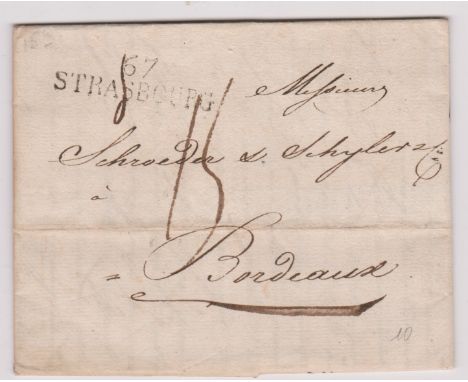 67
STRASBOURG
Messieurs
Schroeder & Schyler & C
à
Bordeaux
10